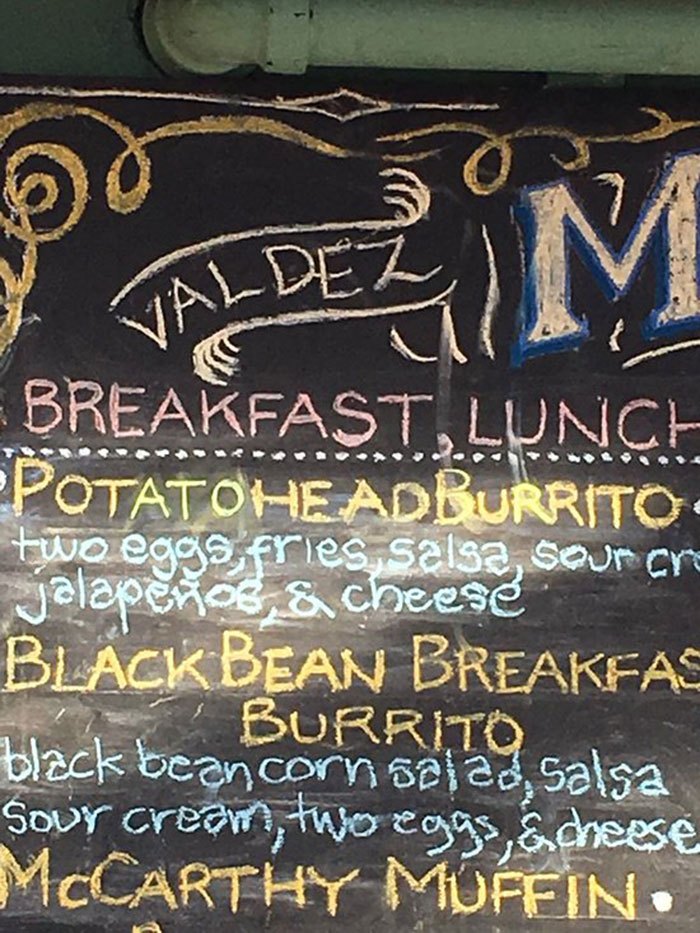 VALDEZ
M
BREAKFAST, LUNCH
POTATOHEAD BURRITO
two eggs, fries, salsa, sour cr
jalapeños, & cheese
BLACK BEAN BREAKFAS
BURRITO
black bean corn salad, salsa
sour cream, two eggs, & cheese
MCCARTHY MUFFIN •